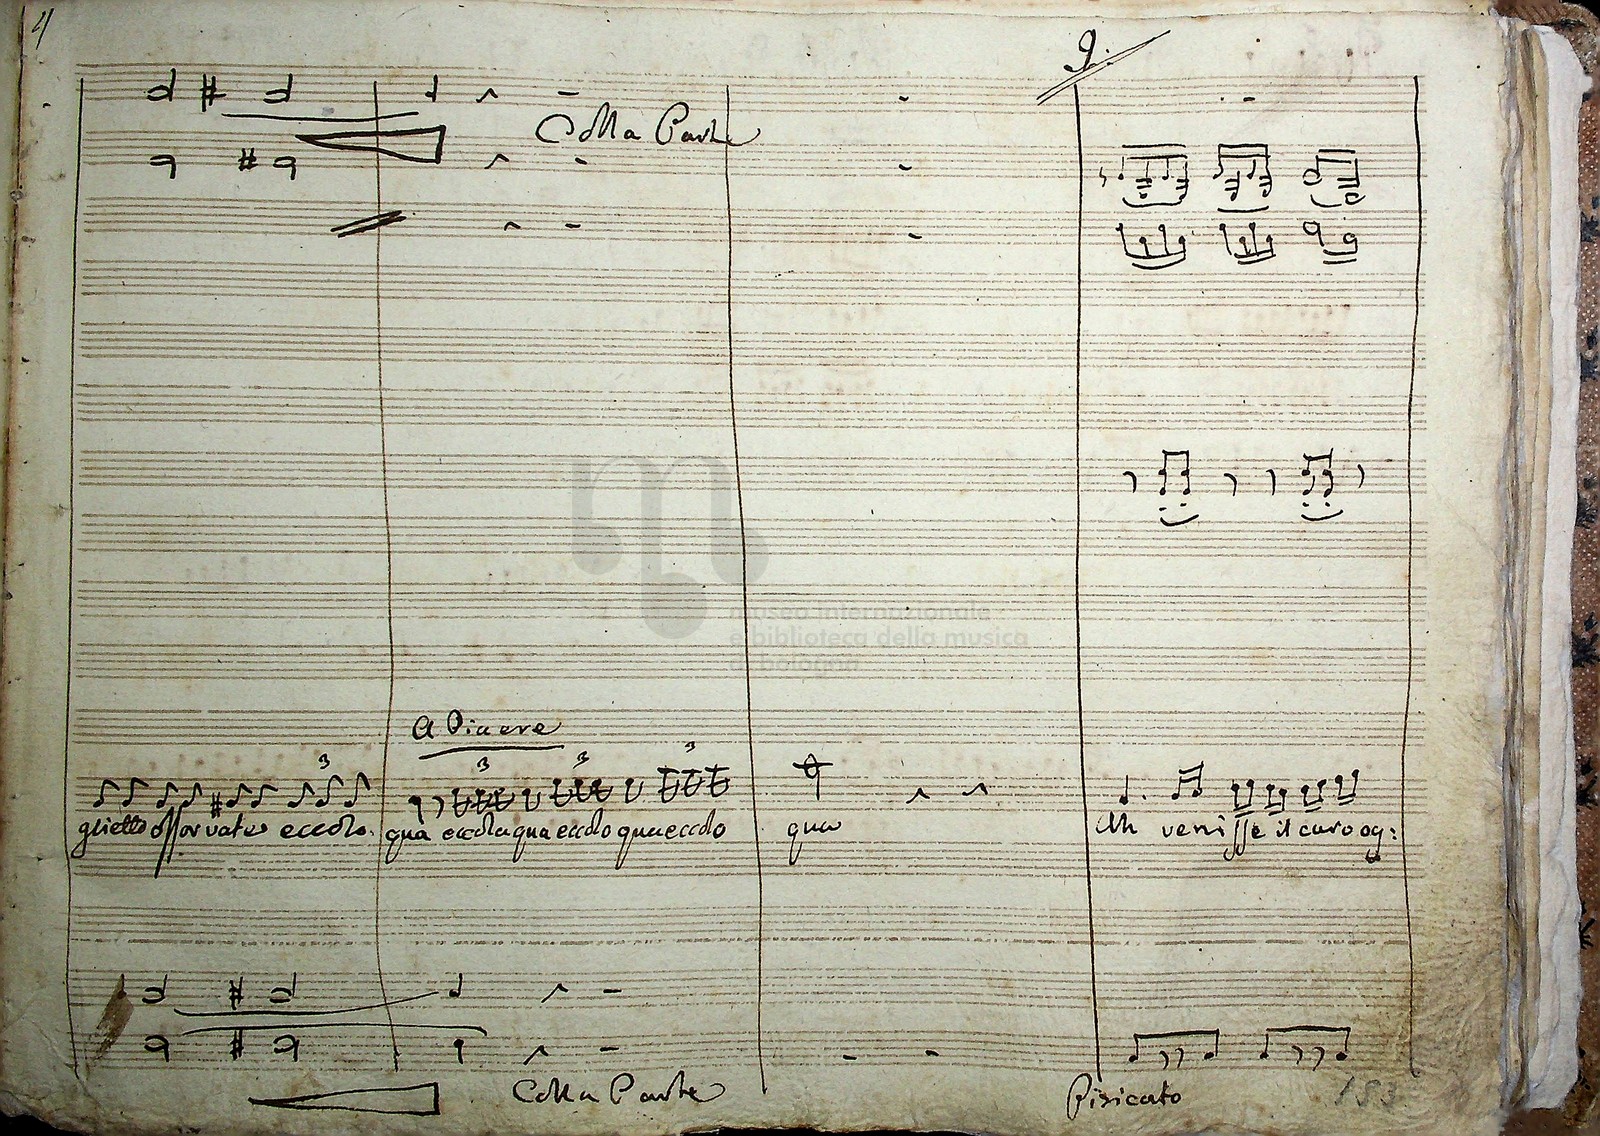 4
9.
Colla Parte
museo internazionale
e biblioteca della musica
di bologna
A Piacere
3 3 3 3
glietto osservate eccolo. qua eccolo qua eccolo qua eccolo qua Ah venisse il caro og:
Colla Parte Pizicato
153